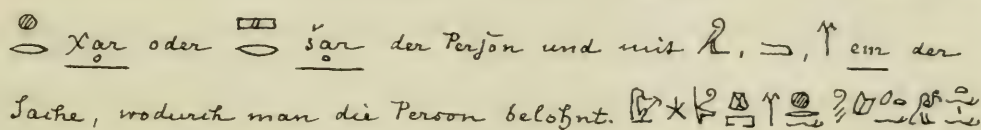 𓐍𓂋 χar oder 𓈙𓂋 šar der Perſon und mit 𓅓, 𓐝, em der
Sache, wodurch man die Person belohnt.